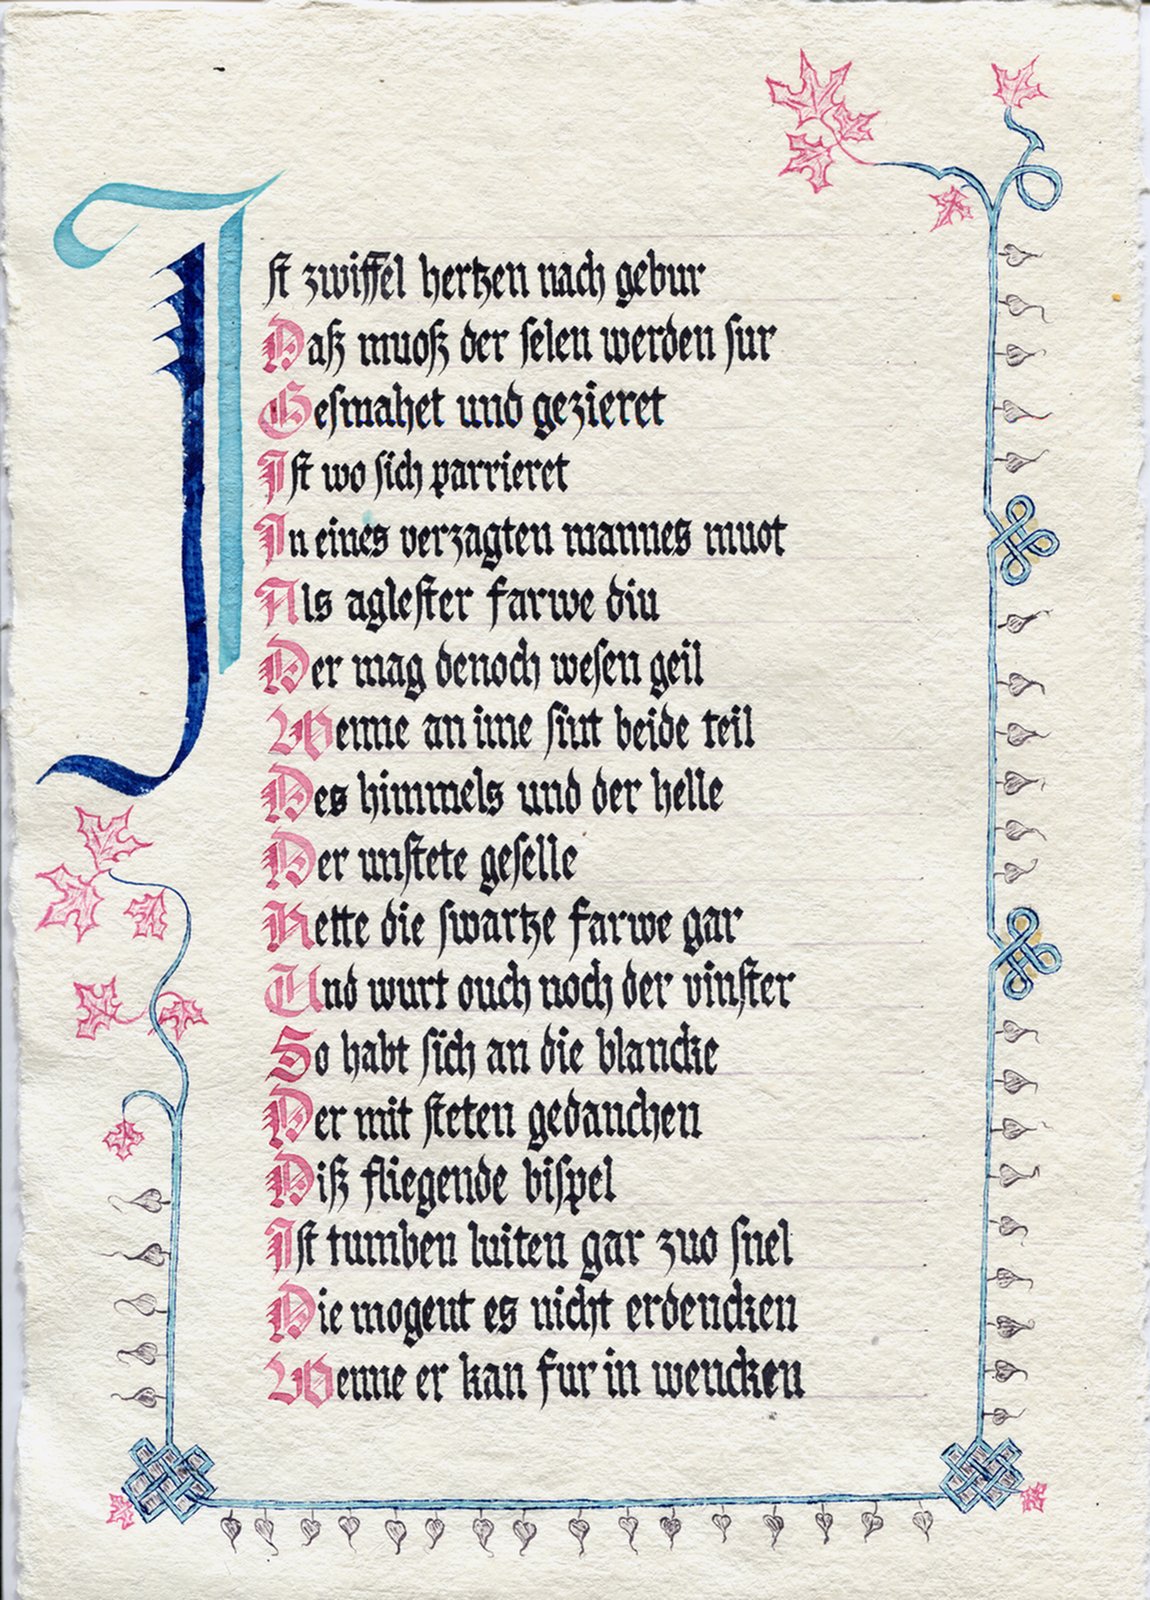 Iſt zwiffel hertzen nach gebur
Daß muoß der ſelen werden ſur
Geſmahet und gezieret
Iſt wo ſich parrieret
In eines verzagten mannes muot
Als agleſter farwe diu
Der mag denoch weſen geil
Wenne an ime ſint beide teil
Des himmels und der helle
Der unſtete geſelle
Hette die ſwartze farwe gar
Und wurt ouch noch der vinſter
So habt ſich an die blancke
Der mit ſteten gedanchen
Diß fliegende biſpel
Iſt tumben luiten gar zuo ſnel
Die mogent es nicht erdencken
Wenne er kan fur in wencken